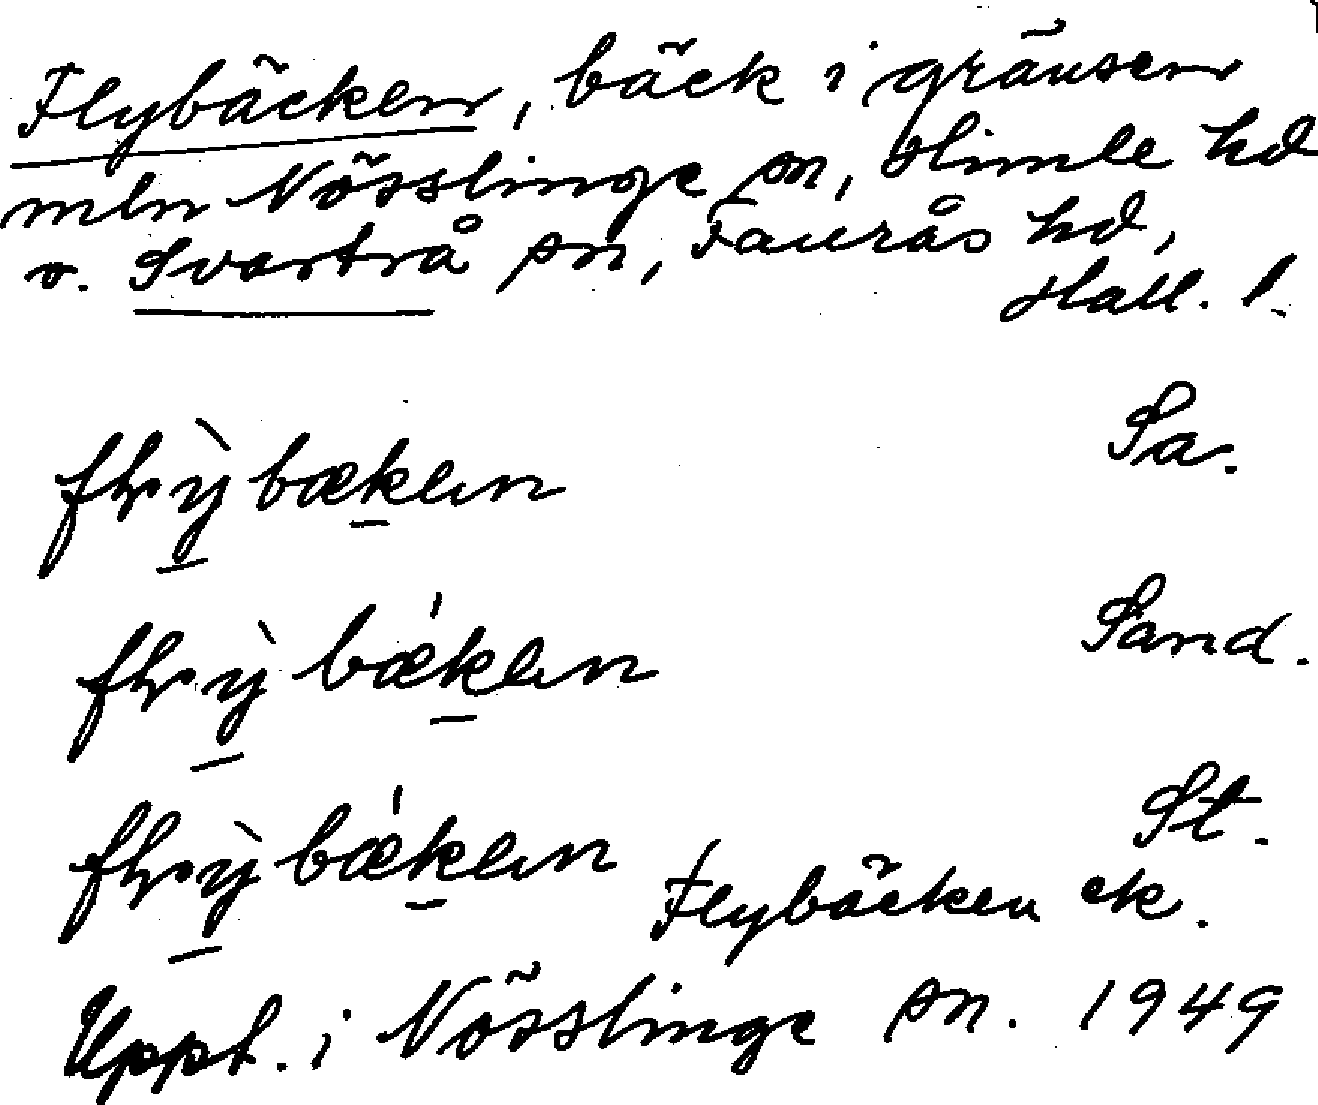 Flybäcken, bäck i gränsen
mln Nösslinge sn, Himle hd
o. Svartrå sn, Faurås hd,
Hall. l.
Sa.
bækən
Sand.
bækən
St.
bækən
Flybäcken ek.
Uppt. i Nösslinge sn. 1949